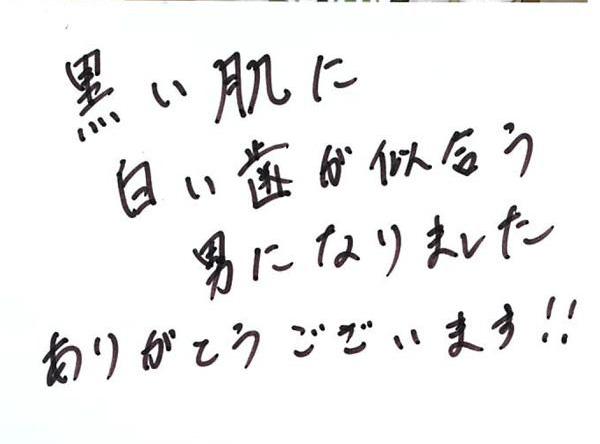 黒い肌に
白い歯が似合う
男になりました
ありがとうございます!!